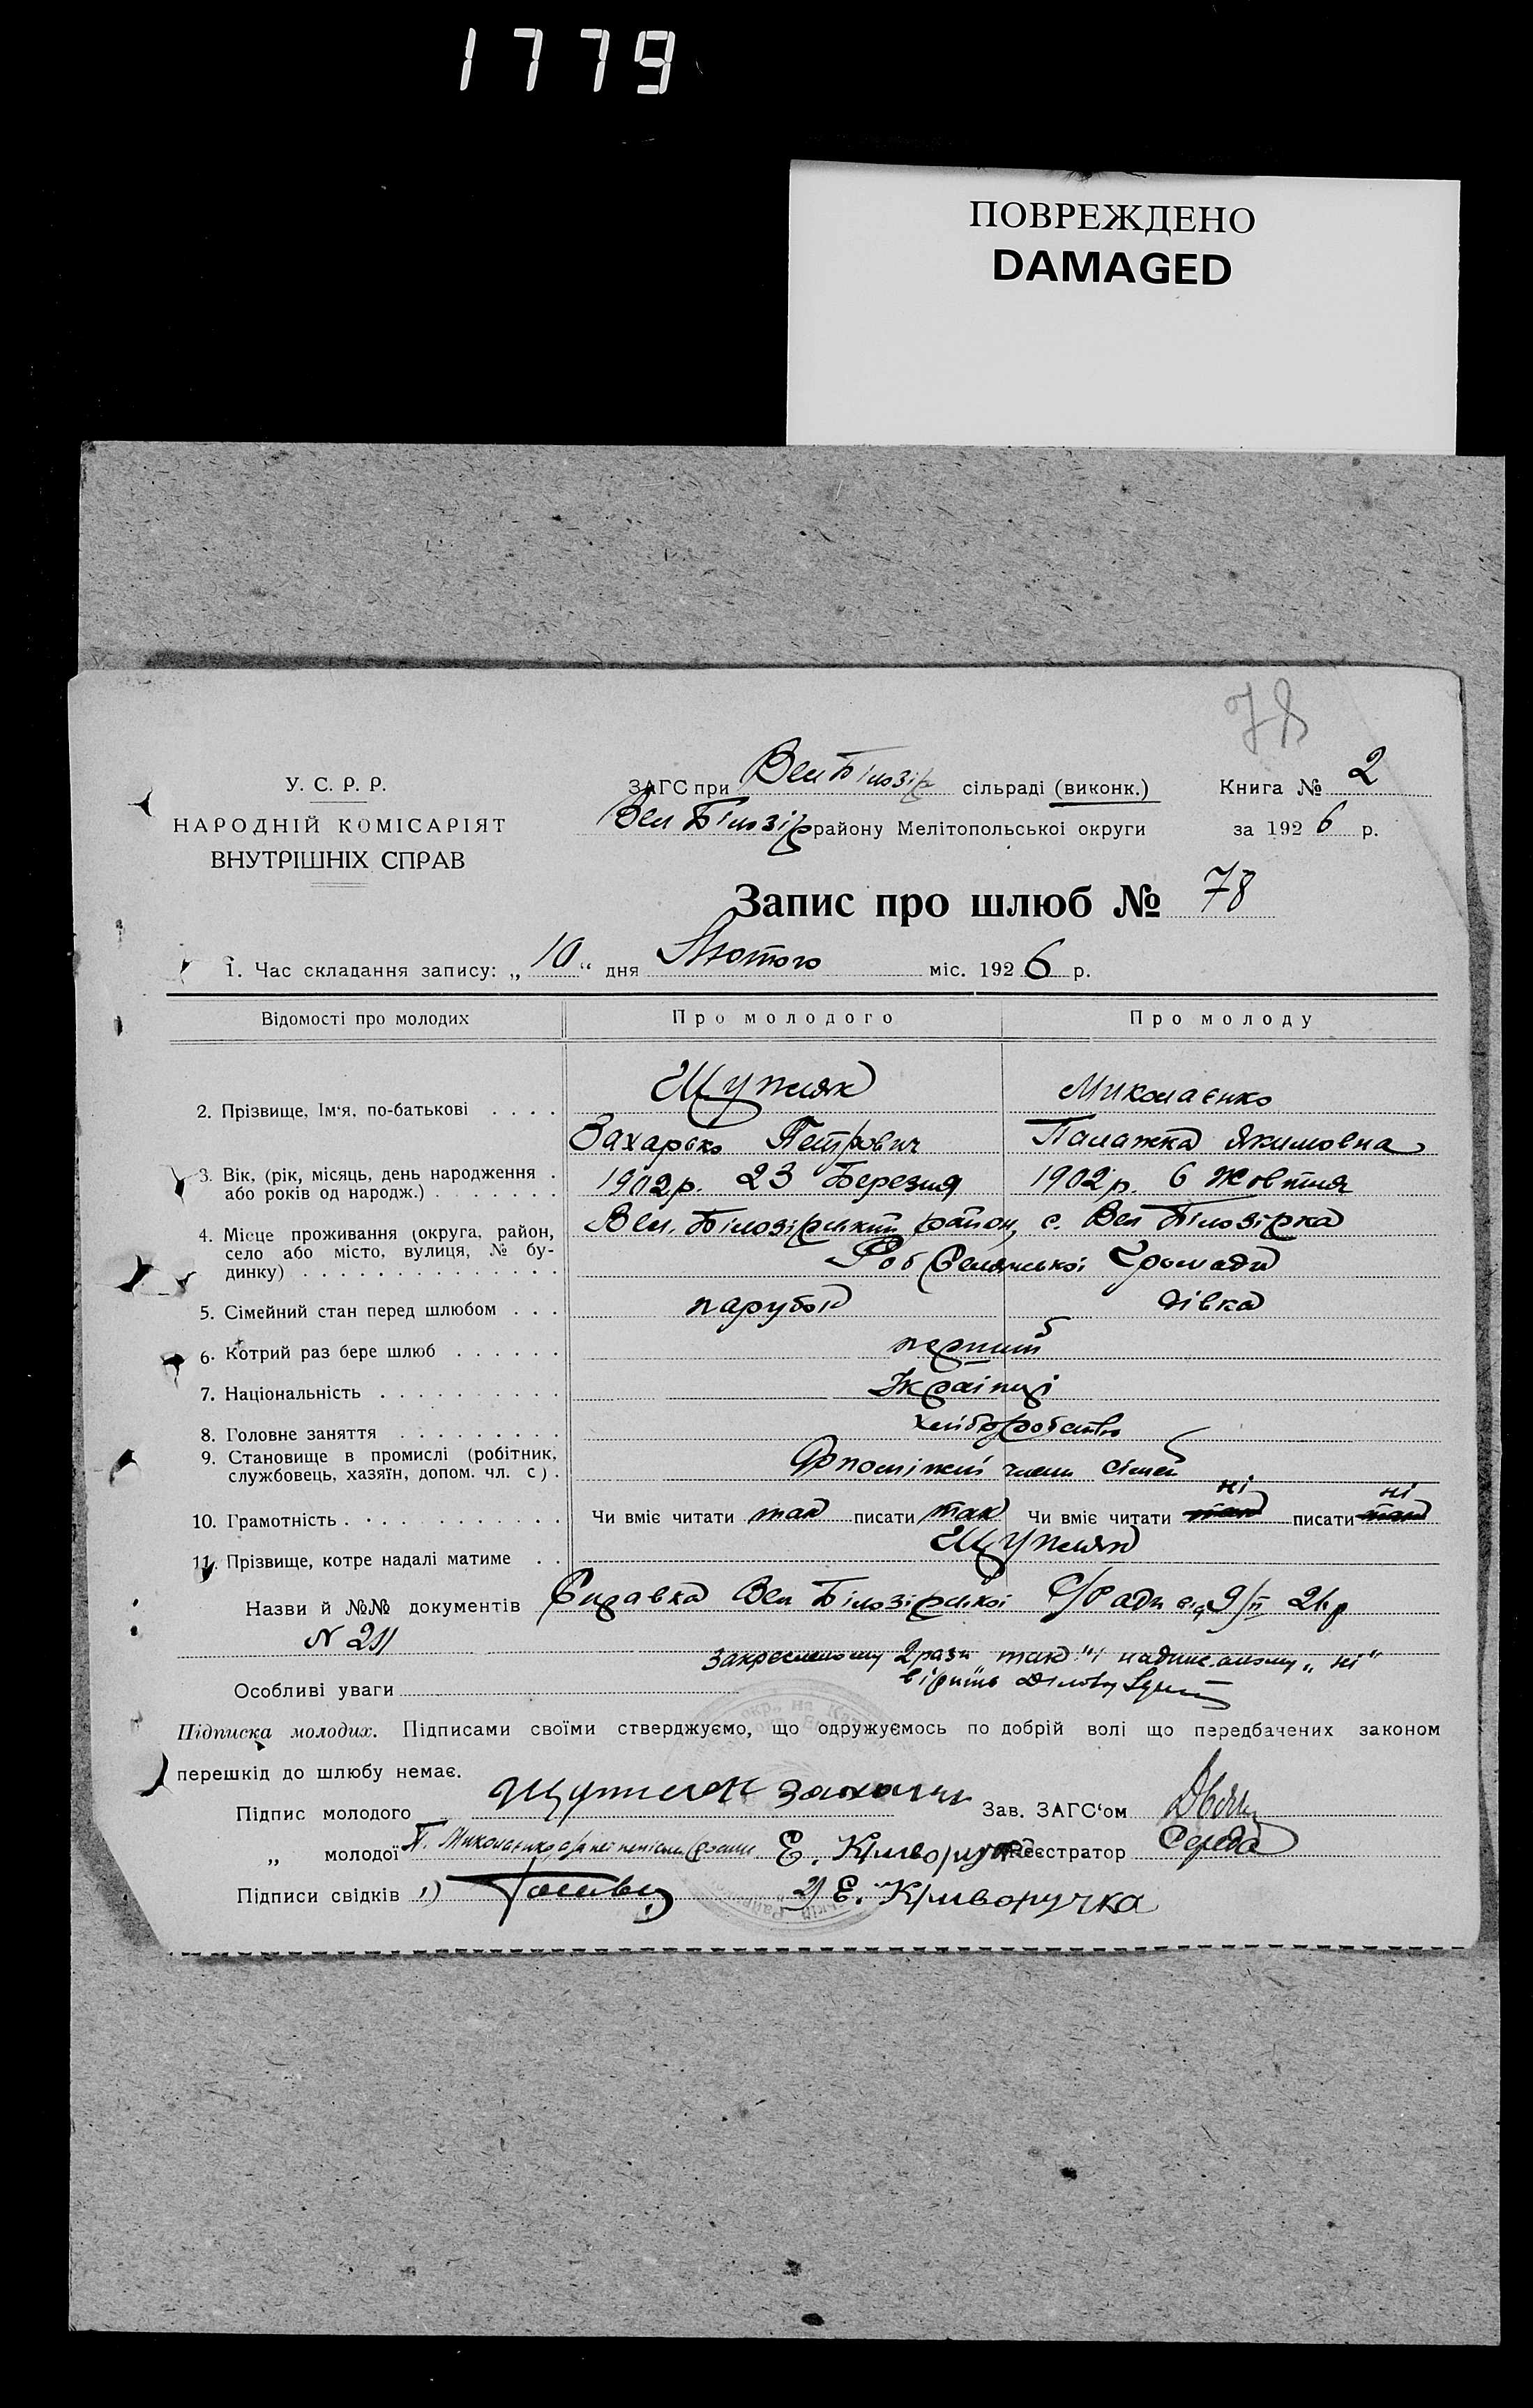 1779
ПОВРЕЖДЕНО
DAMAGED
78
У. С. Р. Р.
НАРОДНІЙ КОМІСАРІЯТ
ВНУТРІШНІХ СПРАВ
ЗАГС при Вел Білозір сільраді (виконк.) Книга № 2
Вел Білозір району Мелітопольської округи за 1926 р.
Запис про шлюб № 78
1. Час складання запису: „10“ дня Лютого міс. 1926 р.
Відомості про молодих Про молодого Про молоду
2. Прізвище, Ім'я, по-батькові . . . . Миколаєнко
Захарько Петрович Палажка Якимовна
3. Вік, (рік, місяць, день народження . 1902 р. 23 Березня 1902 р. 6 Жовтня
або років од народж.) . . . . . . .
4. Місце проживання (округа, район, Вел. Білозірський район, с. Вел Білозірка
село або місто, вулиця, № бу-
динку) . . . . . . . . . . . . . . Селянської Громади
5. Сімейний стан перед шлюбом . . . парубок дівка
6. Котрий раз бере шлюб . . . . . . перший
7. Національність . . . . . . . . . . Українці
8. Головне заняття . . . . . . . . . хліборобство
9. Становище в промислі (робітник,
службовець, хазяїн, допом. чл. с) . член сімей
ні ні
10. Грамотність . . . . . . . . . . . Чи вміє читати так писати так Чи вміє читати так писати так
11. Прізвище, котре надалі матиме . .
Назви й №№ документів Вел Білозірської С/Ради від 9/II 26 р
N 211
закресленому 2 рази так "і надписаному „ні“
Особливі уваги вірить
Підписка молодих. Підписами своїми стверджуємо, що одружуємось по добрій волі що передбачених законом
перешкід до шлюбу немає.
Підпис молодого Зав. ЗАГС'ом
„ молодої П. Миколаєнко Е. Криворучка Реєстратор Середа
Підписи свідків 1) 2) Е. Криворучка